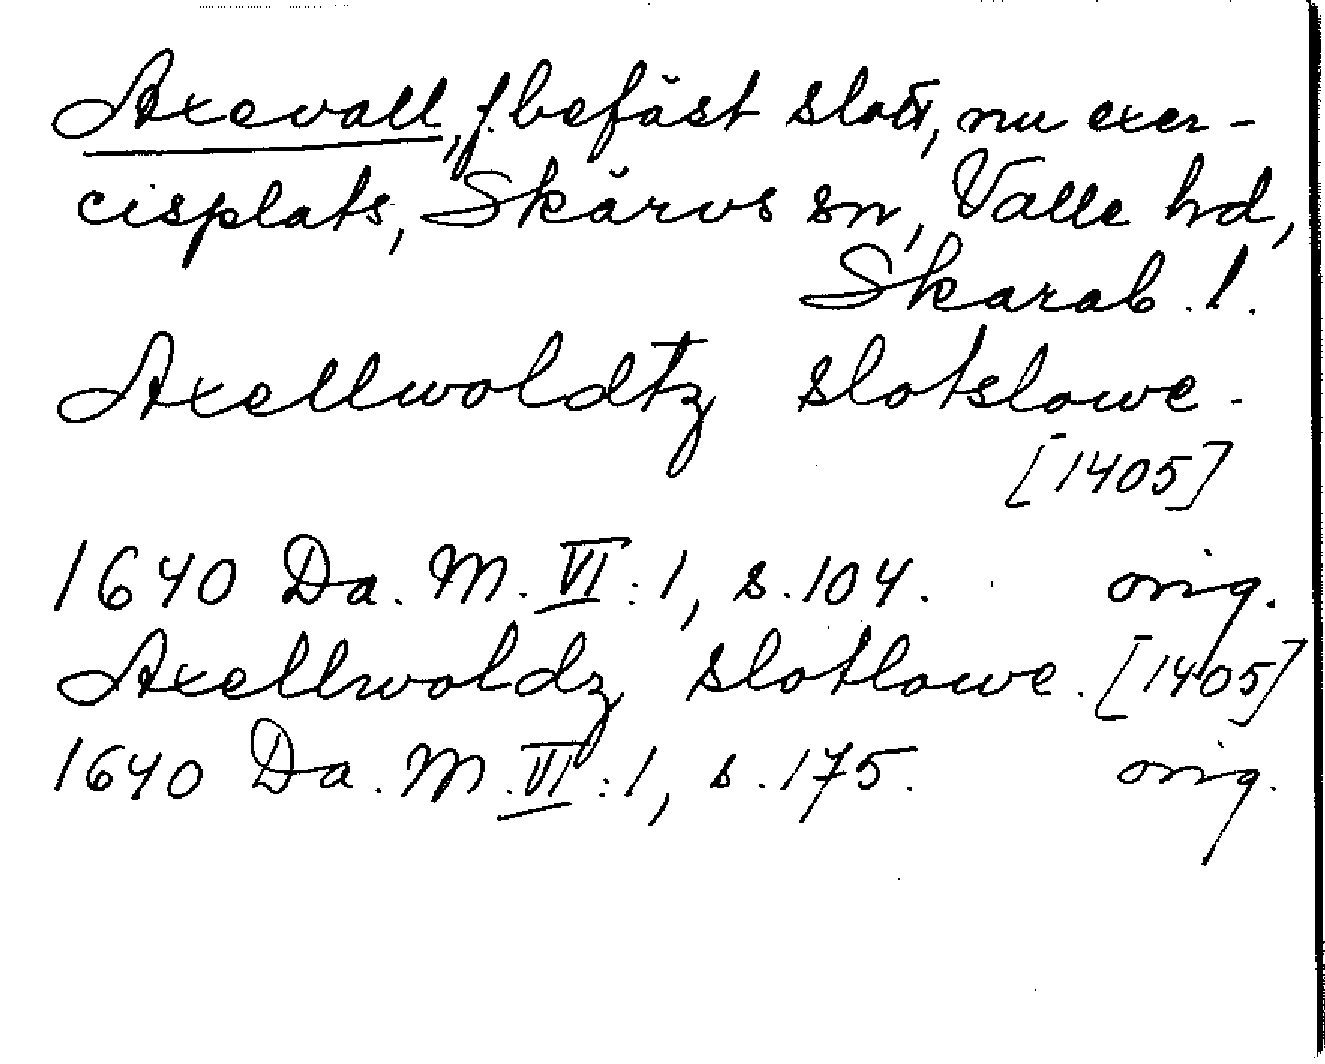 Axevall, f. befäst slott, nu exer-
cisplats, Skärvs sn, Valle hd,
Skarab. l.
Axellwoldtz slotslowe.
[1405]
1640 Da. M. VI:1, s. 104. orig.
Axellwoldz slotlowe. [1405]
1640 Da. M. VI:1, s. 175. orig.